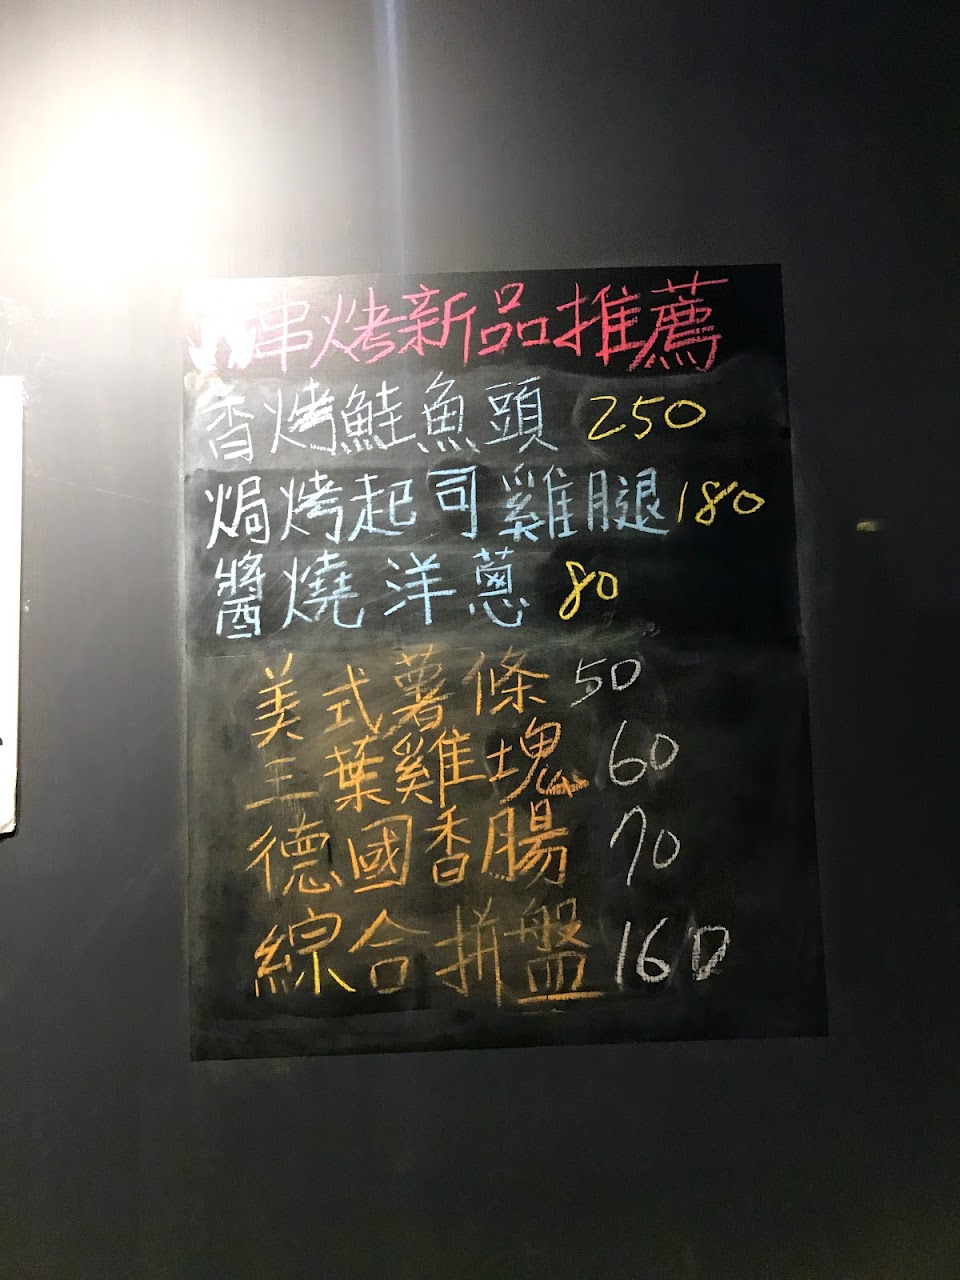 串烤新品推薦
香烤鮭魚頭 250
焗烤起司雞腿 180
醬燒洋蔥 80
美式薯條 50
三葉雞塊 60
德國香腸 70
綜合拼盤 160